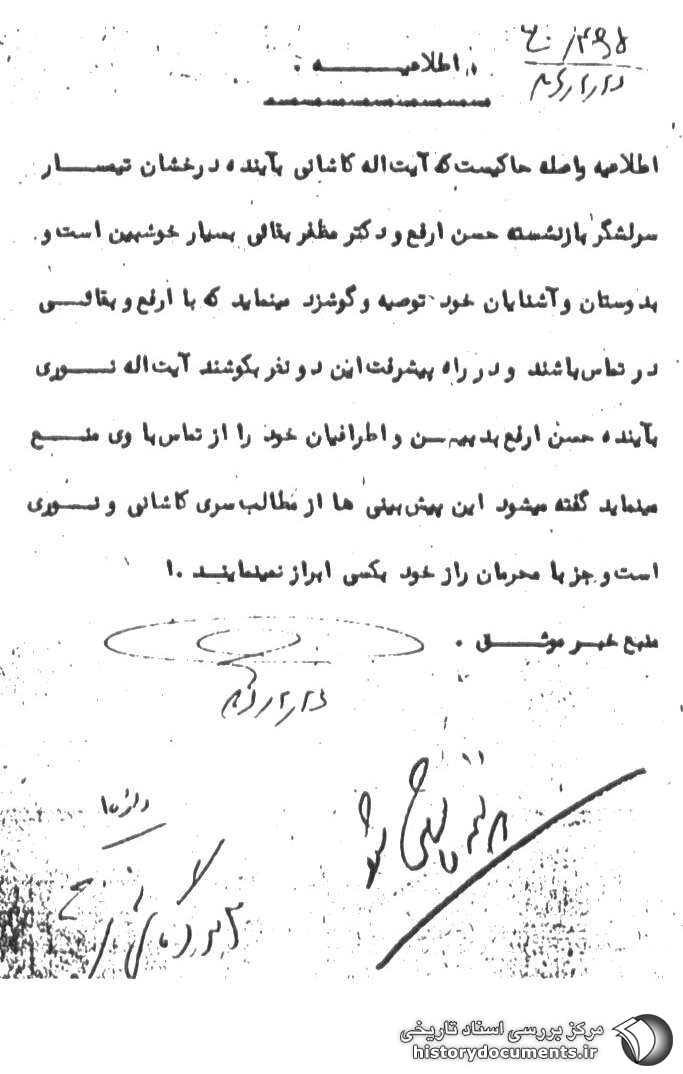 اطلاعیه .
اطلاعیه واصله حاکیست که آیت‌اله کاشانی بآینده درخشان تیمسار
سرلشگر بازنشسته حسن ارفع و دکتر مظفر بقائی بسیار خوشبین است و
بدوستان و آشنایان خود توصیه و گوشزد مینماید که با ارفع و بقائی
در تماس باشند و در راه پیشرفت این دو نفر بکوشند آیت‌اله نوری
بآینده حسن ارفع بدبین و اطرافیان خود را از تماس با وی منع
مینماید گفته میشود این پیش‌بینی ها از مطالب سری کاشانی و نوری
است و جز با محرمان راز خود بکسی ابراز نمینمایند .ا
منبع خبر موثق .
مرکز بررسی اسناد تاریخی
historydocuments.ir